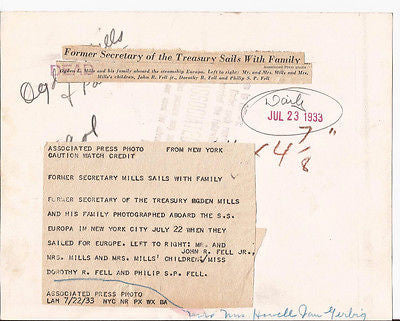 Former Secretary of the Treasury Sails With Family
Associated Press Photo
Ogden L. Mills and his family aboard the steamship Europa. Left to right: Mr. and Mrs. Mills and Mrs.
Mills's children, John R. Fell jr., Dorothy R. Fell and Philip S. P. Fell.
Daily
JUL 23 1933
7"
×4 1/8
ASSOCIATED PRESS PHOTO FROM NEW YORK
CAUTION WATCH CREDIT
FORMER SECRETARY MILLS SAILS WITH FAMILY
FORMER SECRETARY OF THE TREASURY OGDEN MILLS
AND HIS FAMILY PHOTOGRAPHED ABOARD THE S.S.
EUROPA IN NEW YORK CITY JULY 22 WHEN THEY
SAILED FOR EUROPE. LEFT TO RIGHT: MR. AND
JOHN R. FELL JR.,
MRS. MILLS AND MRS. MILLS' CHILDREN/ MISS
DOROTHY R. FELL AND PHILIP S.P. FELL.
ASSOCIATED PRESS PHOTO
LAM 7/22/33 NYC NR PX WX BA
Mrs. Howell Van Gerbig